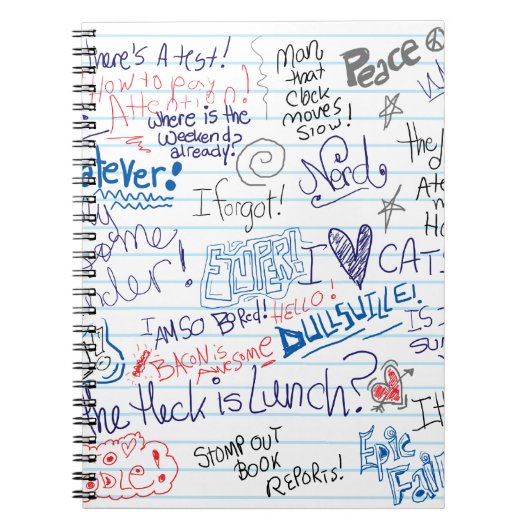 there's A test!
How to pay
Attention!
Where is the
Weekend
already?
Man
that
Clock
moves
Slow!
Peace
the
Ate
Ho
atever!
I forgot!
Nerd
ome
nder!
SUPER!
I ♥ CATS
I AM SO BoRed!
HELLO!
DULLSVILLE!
IS
BACON is
AWESOME
the Heck is Lunch?
It
DLE!
STOMP OUT
BOOK
REPORTS!
EPic
Fail